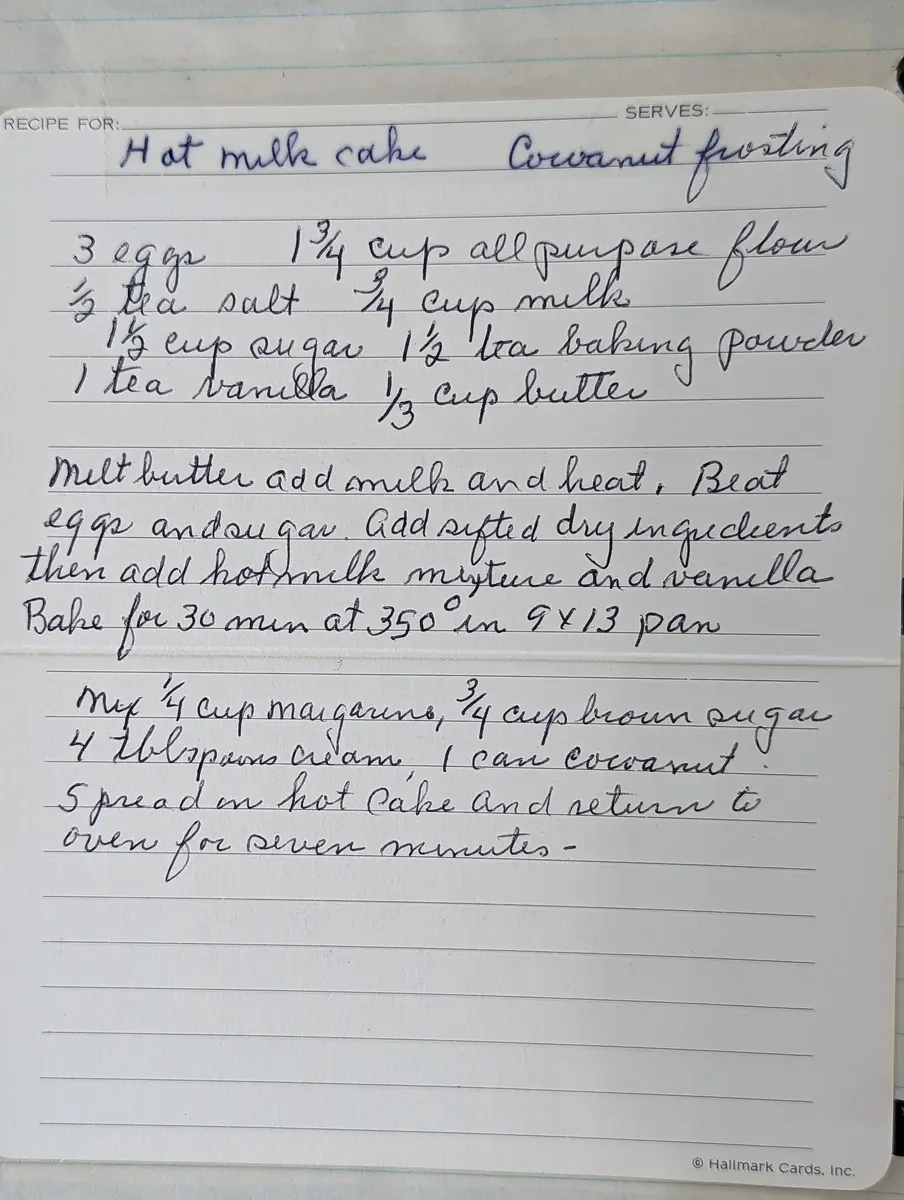 SERVES:
RECIPE FOR:
Hot milk cake Cocoanut frosting
3 eggs 1 3/4 cup all purpose flour
1/2 tea salt 3/4 cup milk
1 1/2 cup sugar 1 1/2 tea baking powder
1 tea vanilla 1/3 cup butter
Melt butter add milk and heat. Beat
eggs and sugar. Add sifted dry ingredients
then add hot milk mixture and vanilla
Bake for 30 min at 350° in 9 x 13 pan
Mix 1/4 cup margarine, 3/4 cup brown sugar
4 tblspoons cream, 1 can cocoanut.
Spread on hot cake and return to
oven for seven minutes -
© Hallmark Cards, Inc.